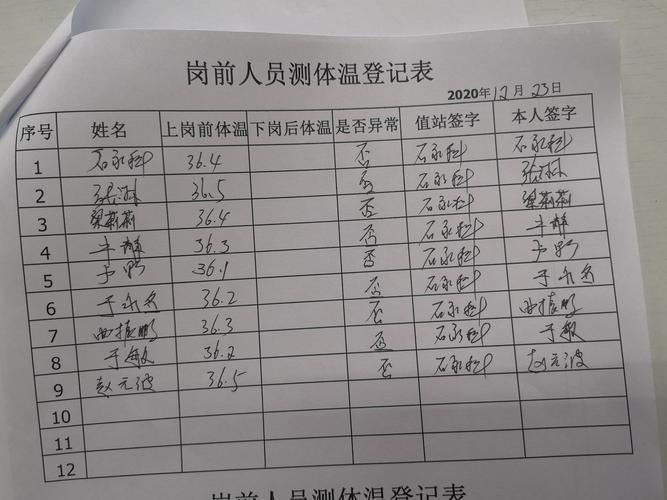 岗前人员测体温登记表
2020年12月23日
序号 姓名 上岗前体温 下岗后体温 是否异常 值站签字 本人签字
1 石永科 36.4 否 石永科 石永科
2 张林 36.5 否 石永科 张林
3 梁莉莉 36.4 否 石永科 梁莉莉
4 牛静 36.3 否 石永科 牛静
5 36.1 否 石永科
6 36.2 否 石永科
7 36.3 否 石永科
8 于敏 36.2 否 石永科 于敏
9 赵元波 36.5 否 石永科 赵元波
10
11
12
岗前人员测体温登记表